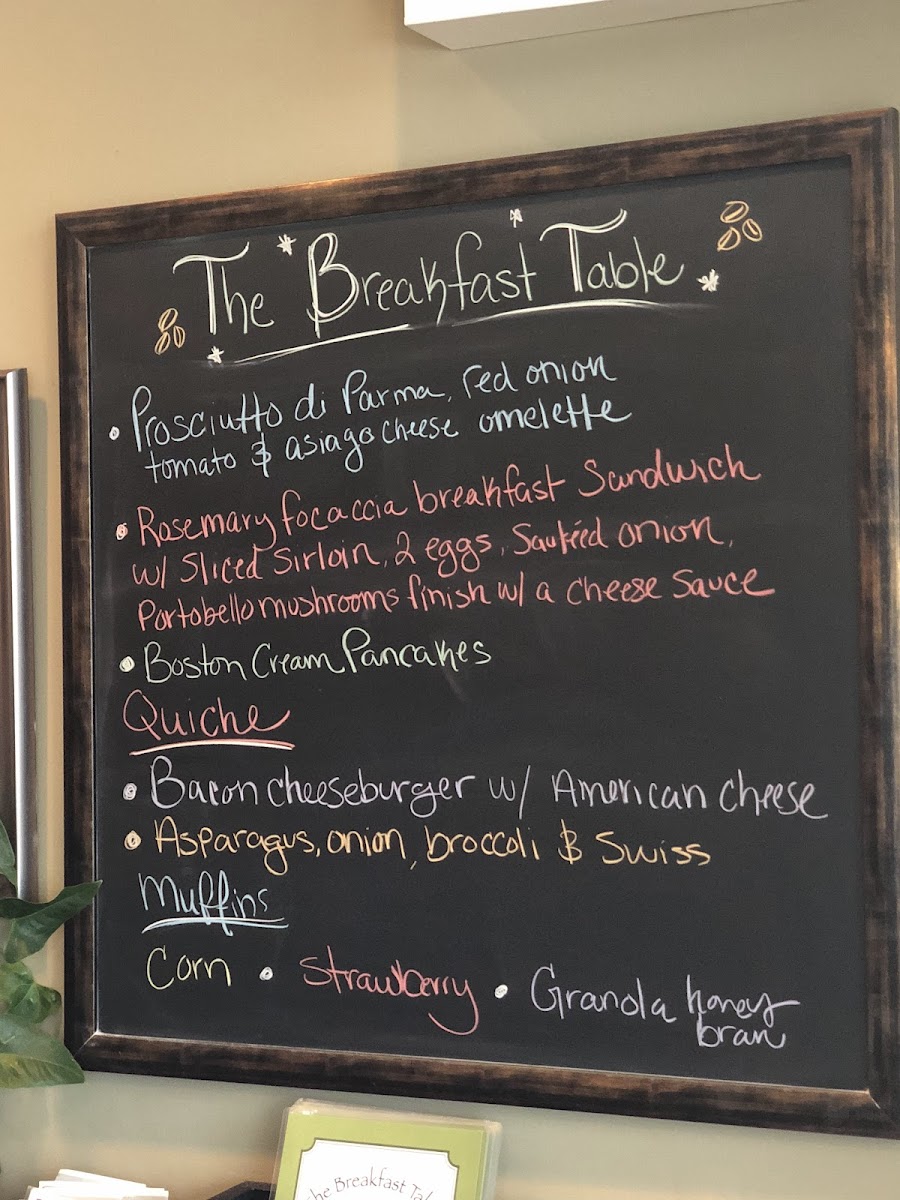 The Breakfast Table
• Prosciutto di Parma, red onion
tomato & asiago cheese omelette
• Rosemary focaccia breakfast Sandwich
w/ Sliced Sirloin, 2 eggs, Sautéed onion,
Portobello mushrooms finish w/ a cheese sauce
• Boston Cream Pancakes
Quiche
• Bacon cheeseburger w/ American cheese
• Asparagus, onion, broccoli & Swiss
Muffins
Corn • Strawberry • Granola honey
bran
The Breakfast Ta